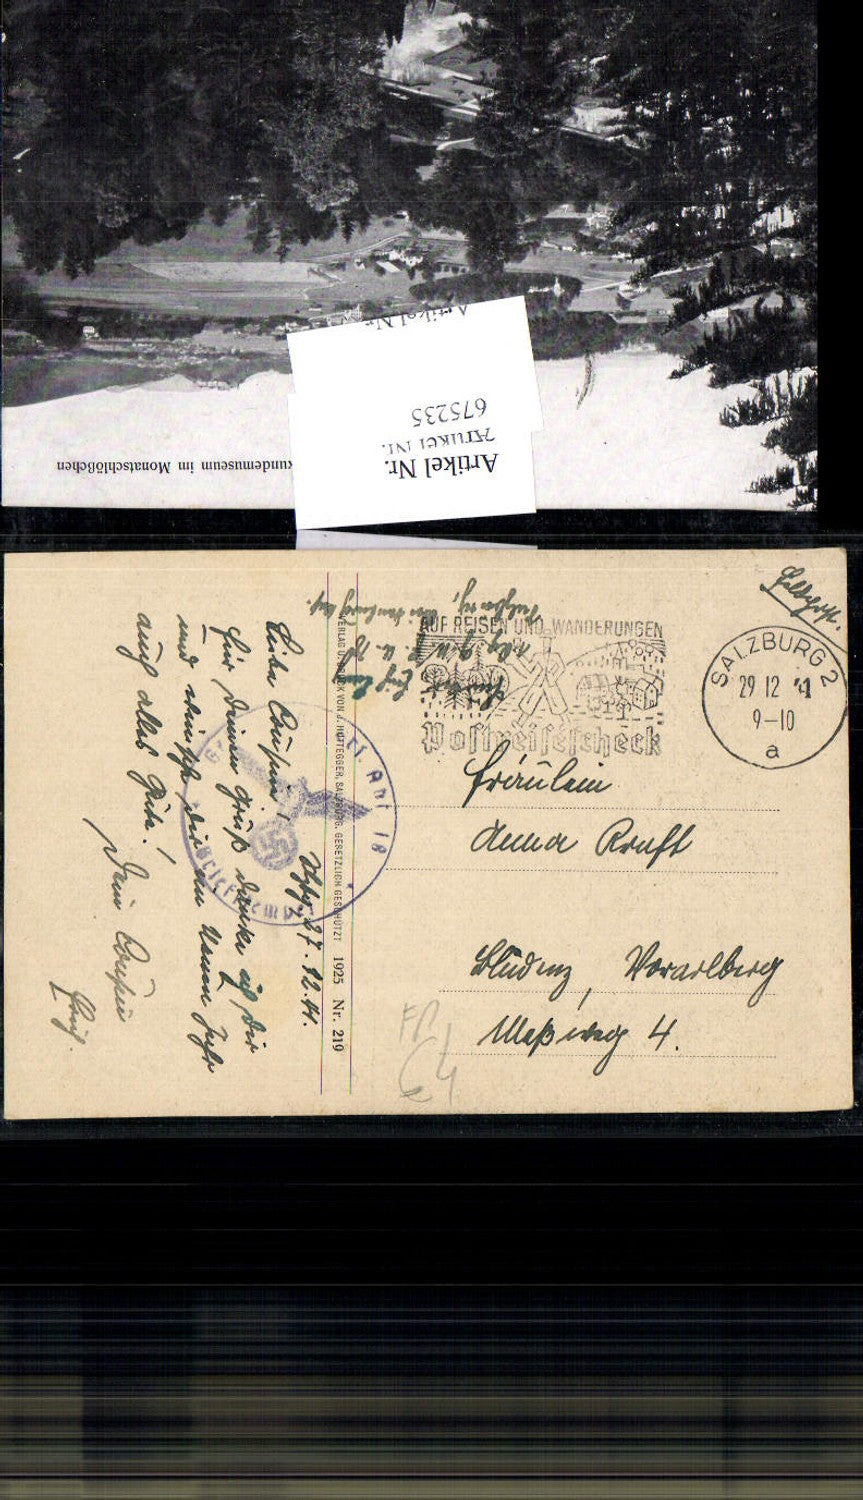 kundemuseum im Monatschlößchen
Artikel Nr.
675235
Artikel Nr.
Artikel Nr.
Feldpost.
AUF REISEN UND WANDERUNGEN
Postreisescheck
SALZBURG 2
29 12 41
9-10
a
Fräulein
Anna Kraft
Bludenz, Vorarlberg
Weg 4.
VERLAG U. DRUCK VON J. HUTTEGGER, SALZBURG. GESETZLICH GESCHÜTZT 1925 Nr. 219
Abt 18
Briefstemp
Sbg, 27.12.41.
Liebe Cousine!
Für deinen Gruß danke ich dir
und wünsche dir im neuen Jahr
auch alles Gute!
Dein Cousin